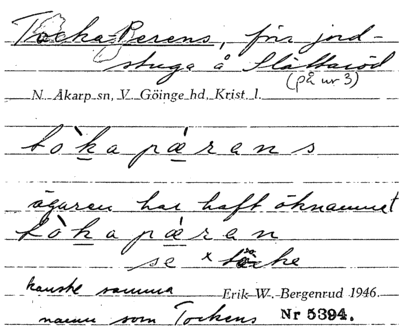 Tocka-Perens, förr jord-
stuga å Slättaröd
(på nr 3)
N. Åkarp sn, V. Göinge hd, Krist. l.
tòkapærans
ägaren har haft öknamnet
tòkapæran
se
kanske samma
Erik W. Bergenrud 1946.
namn som Tockens Nr 5394.